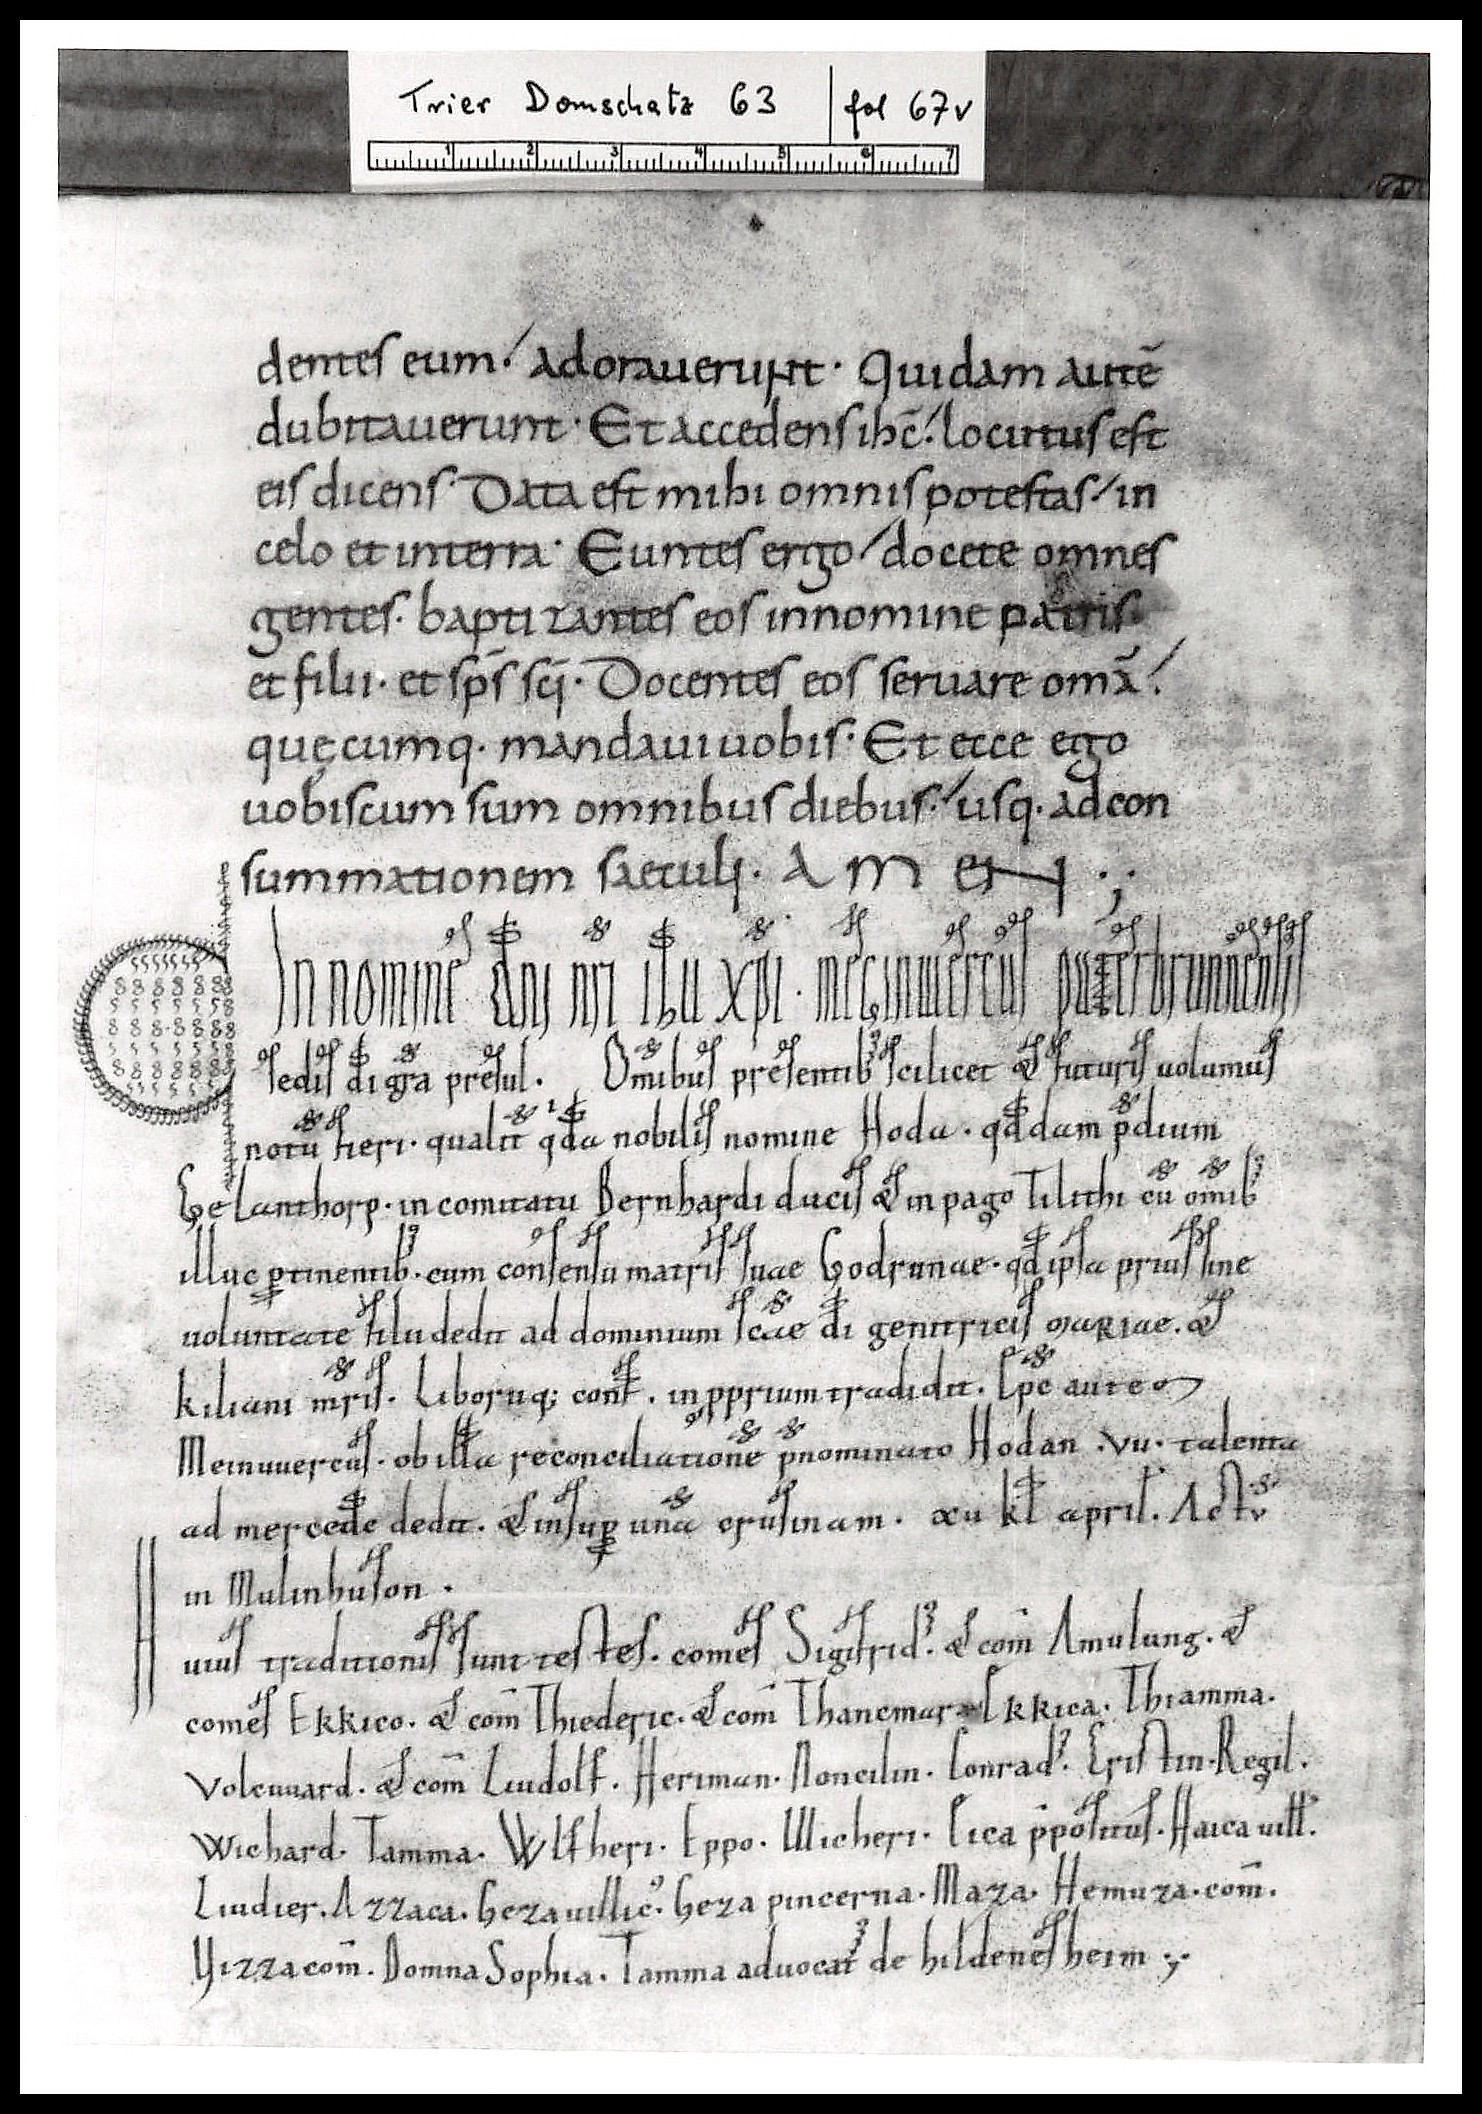 Trier Domschatz 63 | fol 67v
1 2 3 4 5 6 7
dentes eum. adorauerunt. Quidam autē
dubitauerunt. Et accedens ihc̄. locutus est
eis dicens. Data est mihi omnis potestas in
celo et interra. Euntes ergo docete omnes
gentes. baptizantes eos innomine patris.
et filii. et sp̄s sc̄i. Docentes eos seruare om̄a.
quęcumq. mandaui uobis. Et ecce ego
uobiscum sum omnibus diebus. usq. ad con
summationem saeculi. AMEN.;
In nomine dn̄i nr̄i ih̄u xp̄i. meginwercus paterbrunnensis
sedis d̄i gr̄a presul. Om̄ibus presentib; scilicet & futuris uolumus
notū fieri. qualit̄ qđa nobilis nomine Hoda. qđdam p̄dium
Gelanthorp. in comitatu Bernhardi ducis & in pago Tilithi cū om̄ib;
illuc ꝑtinentib;. cum consensu matris suae Godrunae. qđ ipsa prius sine
uoluntate filii dedit ad dominium sc̄ae d̄i genitricis MARIAE. &
kiliani m̄ris. Liboriiq; conf̄. in pprium tradidit. Ep̄c autem
Meinuuercus. ob illa reconciliationē p̄nominato Hodan. VII. talenta
ad mercedē dedit. & insuꝑ unā crusinam. XV kl̄ april. Actū
in Mulinhuson.
uius traditionis sunt testes. comes Sigifrid;. & com̄ Amulung. &
comes Ekkico. & com̄ Thiederic. & com̄ Thancmar Ekkica. Thiamma.
Volcuuard. & com̄ Liudolf. Heriman. Noncilin. Conrad;. Eristin. Regil.
Wichard. Tamma. Wlfheri. Eppo. Wicheri. Eica p̄positus. Haica uill̄.
Liudier. Azzaca. Geza uillic;. Geza pincerna. Maza. Hemuza. com̄.
Vizza com̄. Domna Sophia. Tamma aduocat; de hildenesheim;